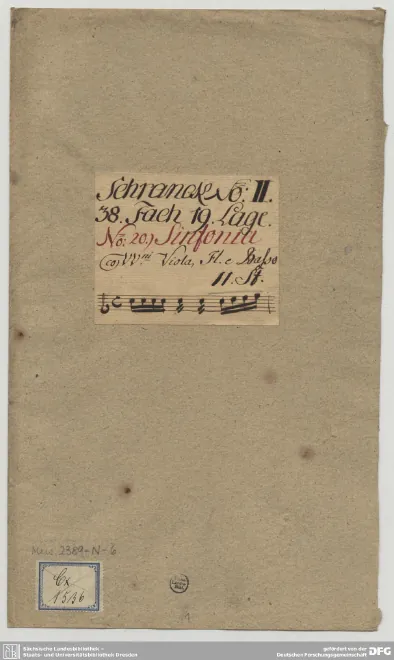 Schranck No: II.
38. Fach 19. Lage.
No: 20.) Sinfonia
(co) VVni Viola, Fl. e Basso
11. St.
Mus. 2389-N-6
Cx
1536
1
Sächsische Landesbibliothek –
Staats- und Universitätsbibliothek Dresden
gefördert von der
Deutschen Forschungsgemeinschaft
DFG